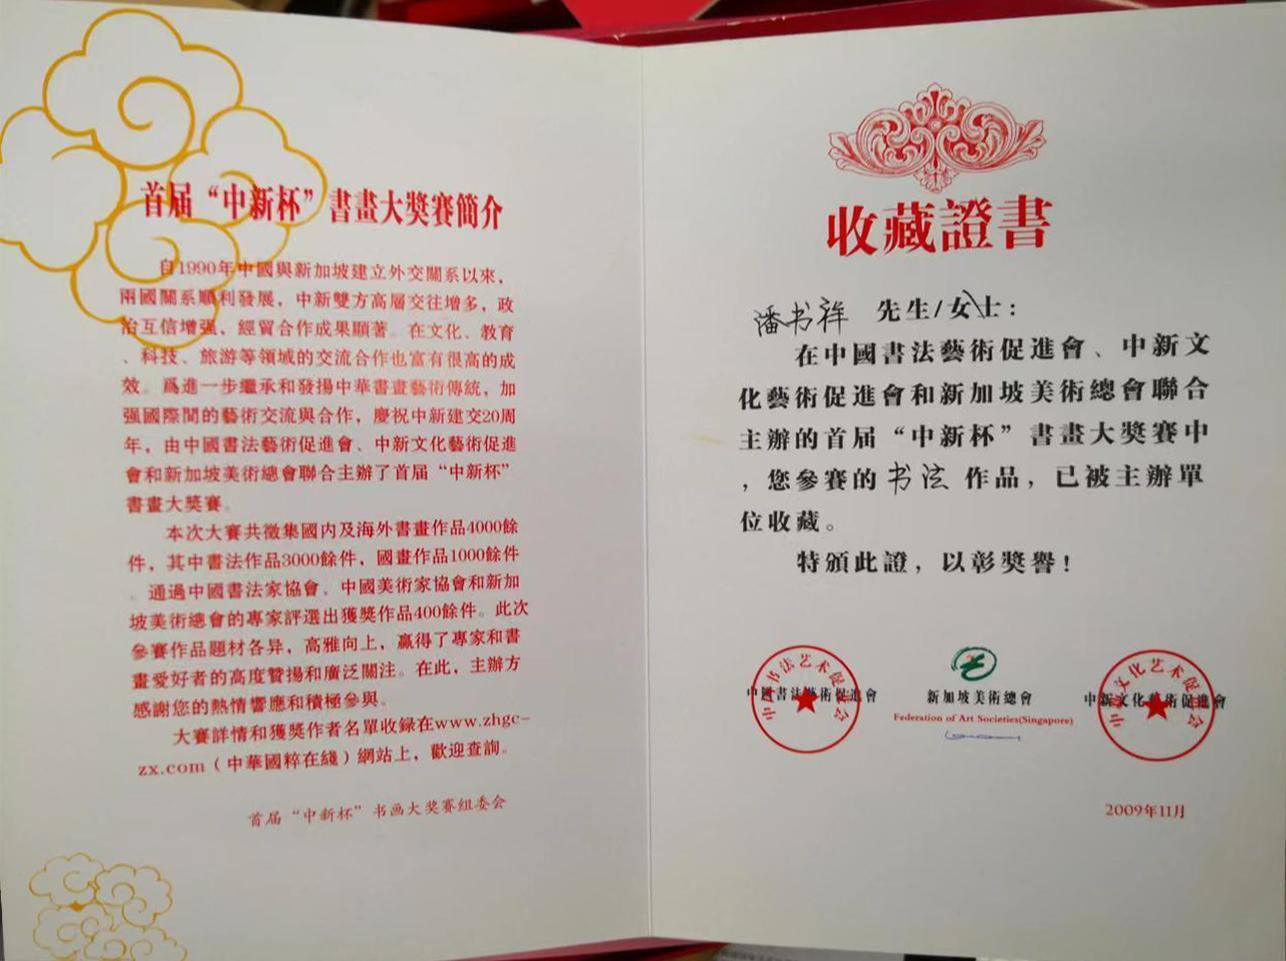 首届“中新杯”書畫大獎賽簡介
自1990年中國與新加坡建立外交關系以來，
兩國關系順利發展，中新雙方高層交往增多，政
治互信增强、經貿合作成果顯著。在文化、教育
、科技、旅游等領域的交流合作也富有很高的成
效。爲進一步繼承和發揚中華書畫藝術傳統，加
强國際間的藝術交流與合作，慶祝中新建交20周
年，由中國書法藝術促進會、中新文化藝術促進
會和新加坡美術總會聯合主辦了首届“中新杯”
書畫大獎賽。
本次大賽共徵集國内及海外書畫作品4000餘
件，其中書法作品3000餘件，國畫作品1000餘件
。通過中國書法家協會、中國美術家協會和新加
坡美術總會的專家評選出獲獎作品400餘件。此次
參賽作品題材各异，高雅向上，贏得了專家和書
畫愛好者的高度贊揚和廣泛關注。在此，主辦方
感謝您的熱情響應和積極參與。
大賽詳情和獲獎作者名單收録在www.zhgc-
zx.com（中華國粹在綫）網站上，歡迎查詢。
首届“中新杯”书画大奖赛组委会
收藏證書
潘书祥 先生/女士：
在中國書法藝術促進會、中新文
化藝術促進會和新加坡美術總會聯合
主辦的首届“中新杯”書畫大獎賽中
，您參賽的书法作品，已被主辦單
位收藏。
特頒此證，以彰獎譽！
中國書法藝術促進會
新加坡美術總會
Federation of Art Societies(Singapore)
中新文化藝術促進會
2009年11月